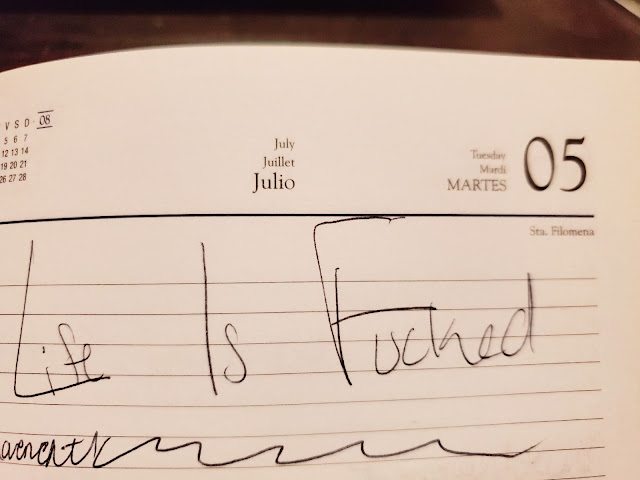 V S D 08
5 6 7
12 13 14
19 20 21
26 27 28
July
Juillet
Julio
Tuesday
Mardi
MARTES
05
Sta. Filomena
Life Is Fucked